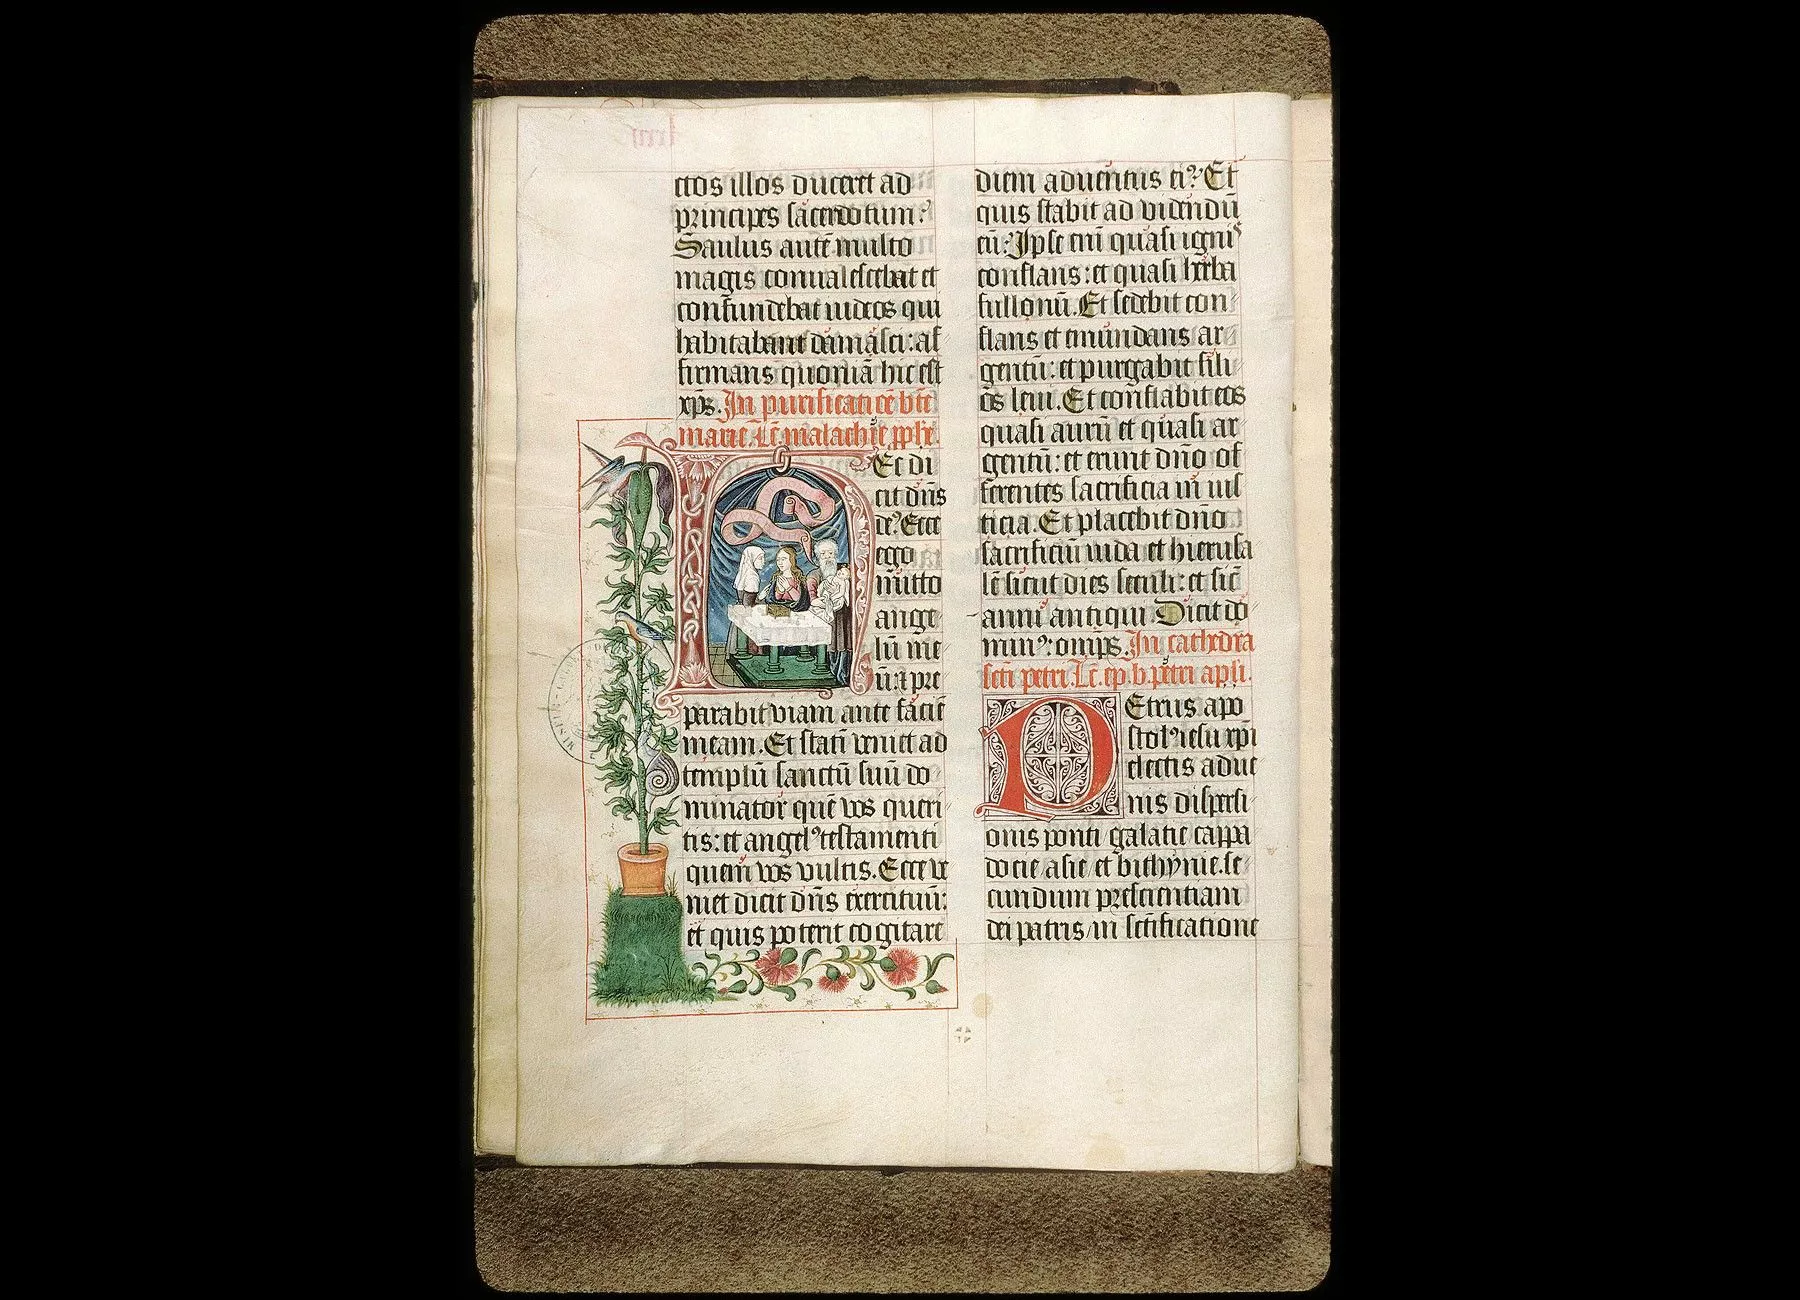 ctos illos duceret ad
principes sacerdotum?
Saulus autē multo
magis conualescebat et
confundebat iudeos qui
habitabant damasci: af
firmans quoniā hic est
xp̄s. In purificatiōe bt̄e
marie. Lc̄ malachie pph̄e.
Ec di
cit dn̄s
de᷒. Ecce
ego
mitto
ange
lū me
ū: ⁊ pre
parabit viam ante faciē
meam. Et statī veniet ad
templū sanctū suū do
minator quē vos queri
tis: et angelꝰ testamenti
quem vos vultis. Ecce ve
niet dicit dn̄s exercituū:
et quis poterit cogitare
diem aduentus eiꝰ? Et
quis stabit ad videndū
eū? Ipse enī quasi ignis
conflans: et quasi herba
fullonū. Et sedebit con
flans et emundans ar
gentū: et purgabit fili
os leui. Et conflabit eos
quasi aurū et quasi ar
gentū: et erunt dn̄o of
ferentes sacrificia in ius
ticia. Et placebit dn̄o
sacrificiū iuda et hierusa
lē sicut dies seculi: et sic̄
anni antiqui Dicit do
minꝰ: omp̄s. In cathedra
sc̄ti petri. Lc̄ ep. b. petri apl̄i.
PEtrus apo
stolꝰ iesu xp̄i
electis adue
nis dispersi
onis ponti galatie cappa
docie asie et bithynie. se
cundum prescientiam
dei patris in sc̄tificatione